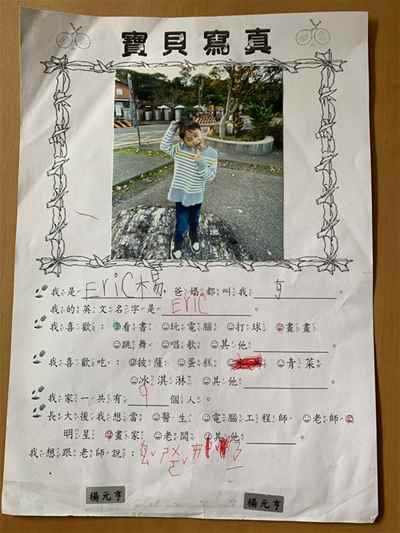 寶貝寫真
我是Eric楊，爸媽都叫我
我的英文名字是Eric
我喜歡：看書 玩電腦 打球 畫畫
跳舞 唱歌 其他
我喜歡吃：披薩 蛋糕 青菜
冰淇淋 其他
我家一共有 個人。
長大後我想當：醫生 電腦工程師 老師
明星 畫家 老闆 其他
我想跟老師說：
楊元亨 楊元亨